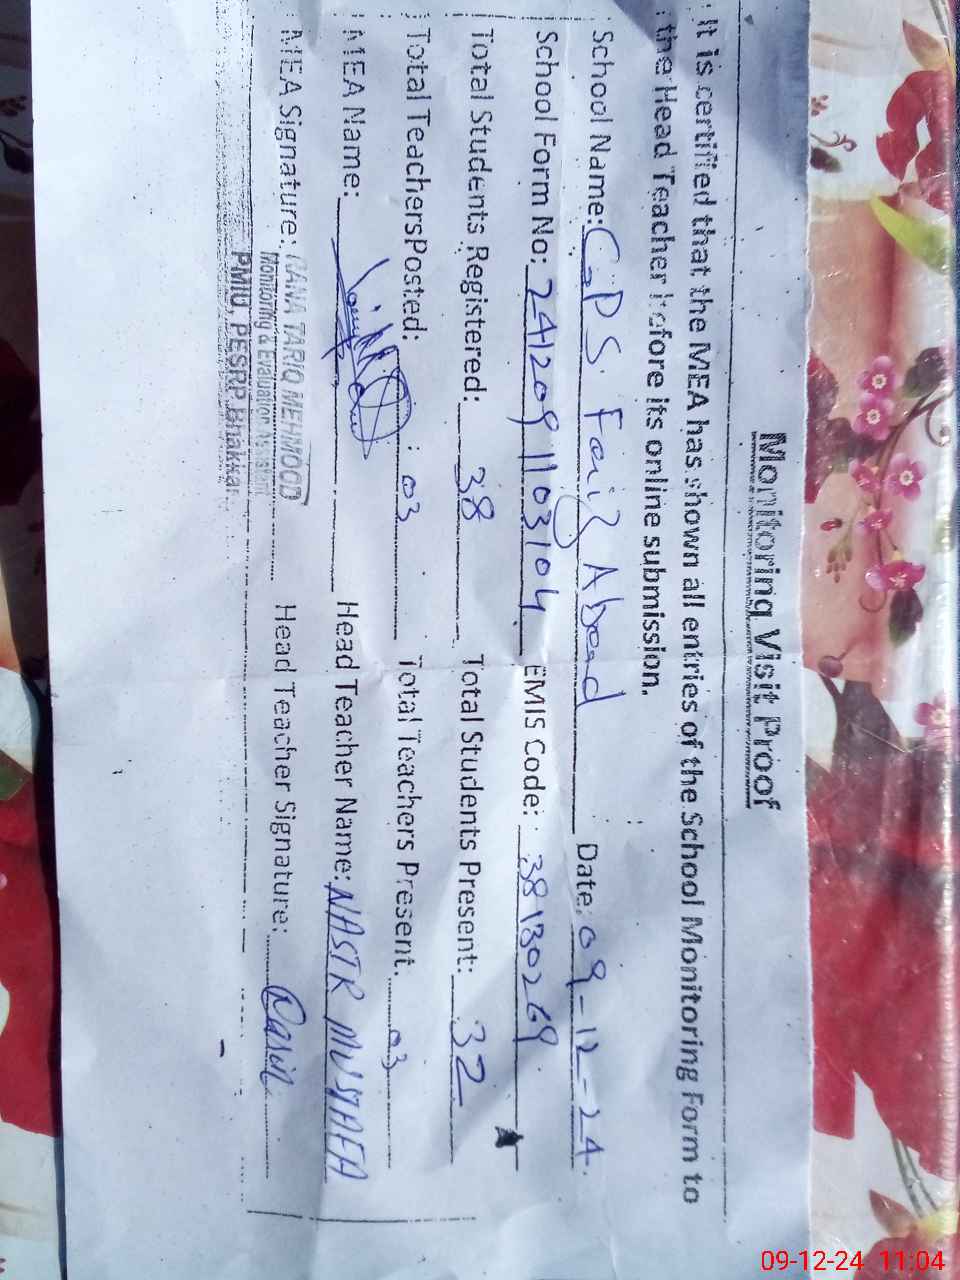 Monitoring Visit Proof
It is certified that the MEA has shown all entries of the School Monitoring Form to
the Head Teacher before its online submission.
School Name: GPS Faiz Abaad Date: 09-12-24
School Form No: 241209 1103104 EMIS Code: 38130269
Total Students Registered: 38 Total Students Present: 32
Total TeachersPosted: 03 Total Teachers Present. 03
MEA Name: Head Teacher Name: NASIR MUSTAFA
MEA Signature: RANA TARIQ MEHMOOD Head Teacher Signature: Nasir
Monitoring & Evaluation Assistant
PMIU, PESRP Bhakkar
09-12-24 11:04